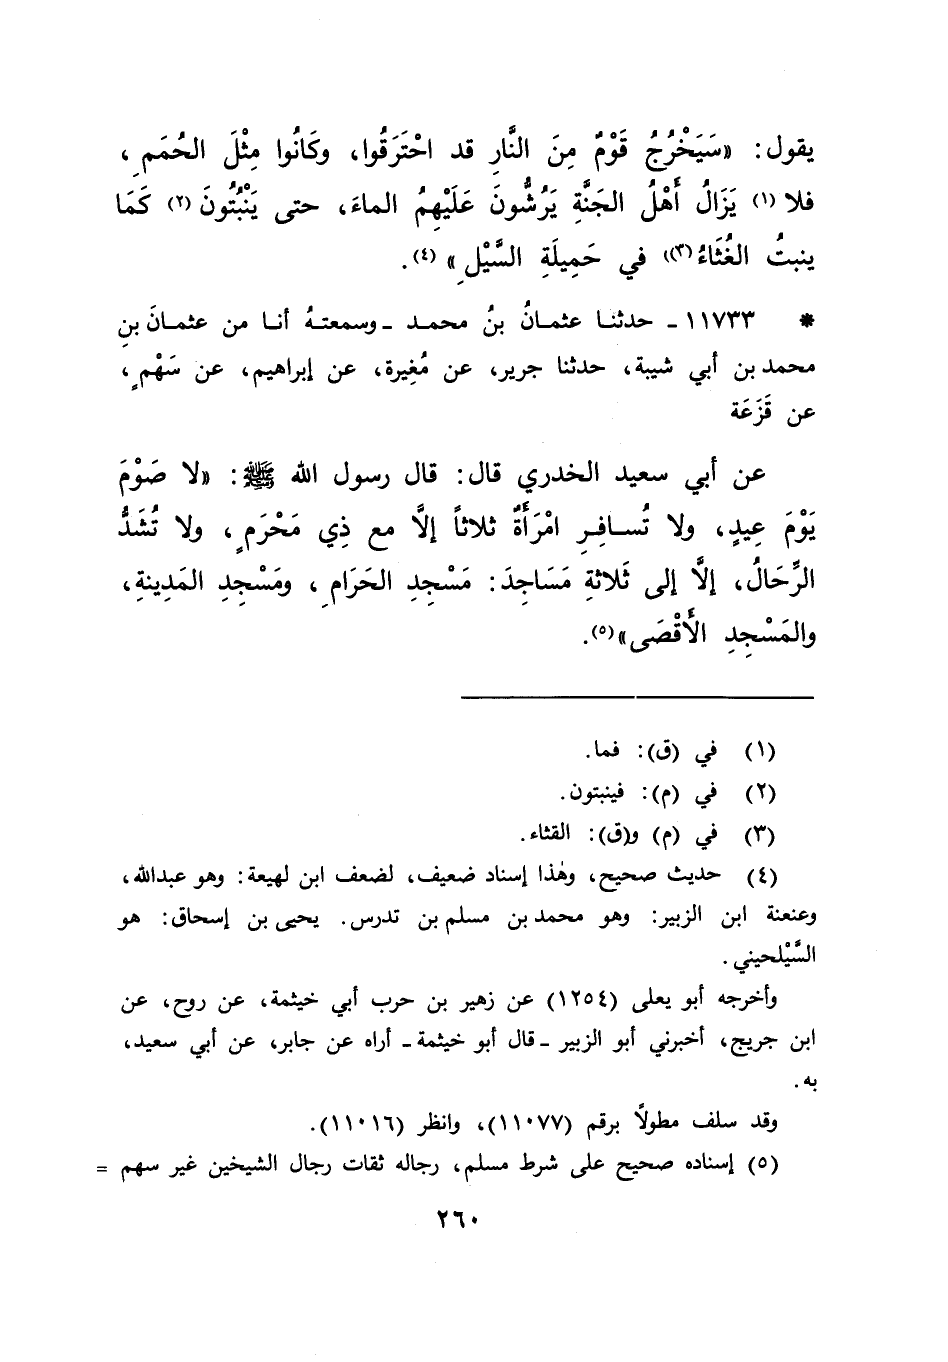 يقول: «سَيَخْرُجُ قَوْمٌ مِنَ النَّارِ قد احْتَرَقُوا، وكَانُوا مِثْلَ الحُمَمِ،
فلا(١) يَزَالُ أَهْلُ الجَنَّةِ يَرُشُّونَ عَلَيْهِمُ الماءَ، حتى يَنْبُتُونَ(٢) كَمَا
ينبتُ الغُثَاءُ(٣) في حَمِيلَةِ السَّيْلِ»(٤).
* ١١٧٣٣ - حدثنا عثمانُ بنُ محمد - وسمعتهُ أنا من عثمانَ بنِ
محمد بن أبي شيبة، حدثنا جرير، عن مُغِيرة، عن إبراهيم، عن سَهْمٍ،
عن قَزَعَة
عن أبي سعيد الخدري قال: قال رسول الله ﷺ: «لا صَوْمَ
يَوْمَ عِيدٍ، ولا تُسافِرِ امْرَأَةٌ ثلاثاً إلَّا مع ذِي مَحْرَمٍ، ولا تُشَدُّ
الرِّحَالُ، إلَّا إلى ثَلاثةِ مَسَاجِدَ: مَسْجِدِ الحَرَامِ، ومَسْجِدِ المَدِينةِ،
والمَسْجِدِ الأَقْصَى»(٥).
(١) في (ق): فما.
(٢) في (م): فينبتون.
(٣) في (م) و(ق): القثاء.
(٤) حديث صحيح، وهٰذا إسناد ضعيف، لضعف ابن لهيعة: وهو عبدالله،
وعنعنة ابن الزبير: وهو محمد بن مسلم بن تدرس. يحيى بن إسحاق: هو
السَّيْلحيني.
وأخرجه أبو يعلى (١٢٥٤) عن زهير بن حرب أبي خيثمة، عن روح، عن
ابن جريج، أخبرني أبو الزبير - قال أبو خيثمة - أراه عن جابر، عن أبي سعيد،
به.
وقد سلف مطولاً برقم (١١٠٧٧)، وانظر (١١٠١٦).
(٥) إسناده صحيح على شرط مسلم، رجاله ثقات رجال الشيخين غير سهم =
٢٦٠